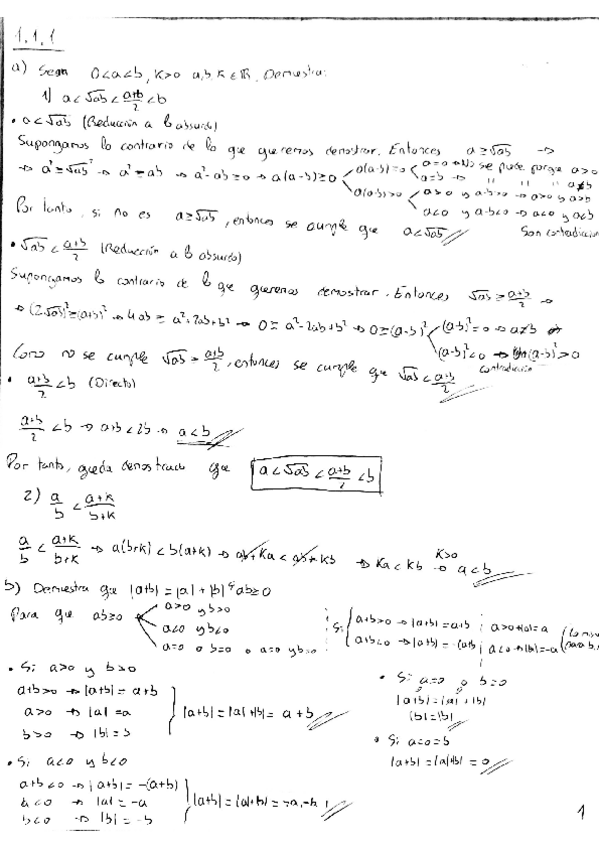 1.1.1
a) Sean 0<a<b, K>0 a,b,K∈ℝ. Demuestra:
1) a<√ab<(a+b)/2<b
• a<√ab (Reducción a lo absurdo)
Supongamos lo contrario de lo que queremos demostrar. Entonces a≥√ab →
→ a²≥√ab² → a²≥ab → a²-ab≥0 → a(a-b)≥0
a(a-b)=0 a=0 → No se puede porque a>0
a=b → " " " a≠b
a(a-b)>0 a>0 y a-b>0 → a>0 y a>b
a<0 y a-b<0 → a<0 y a<b
Por tanto, si no es a≥√ab, entonces se cumple que a<√ab Son contradiccion
• √ab<(a+b)/2 (Reducción a lo absurdo)
Supongamos lo contrario de lo que queremos demostrar. Entonces √ab≥(a+b)/2 →
→ (2√ab)²≥(a+b)² → 4ab≥a²+2ab+b² → 0≥a²-2ab+b² → 0≥(a-b)²
(a-b)²=0 → a≠b
(a-b)²<0 → (a-b)²>0
contradicción
Como no se cumple √ab≥(a+b)/2, entonces se cumple que √ab<(a+b)/2
• (a+b)/2<b (Directo)
(a+b)/2<b → a+b<2b → a<b
Por tanto, queda demostrado que a<√ab<(a+b)/2<b
2) a/b<(a+k)/(b+k)
a/b<(a+k)/(b+k) → a(b+k)<b(a+k) → ab+Ka<ab+Kb → Ka<Kb K>0 → a<b
b) Demuestra que |a+b|=|a|+|b| ⇔ ab≥0
Para que ab≥0
a>0 y b>0
a<0 y b<0
a=0 o b=0 o a=0 y b=0
Si a+b>0 → |a+b|=a+b
a+b<0 → |a+b|=-(a+b)
a>0 → |a|=a
a<0 → |a|=-a
• Si a>0 y b>0
a+b>0 → |a+b|=a+b
a>0 → |a|=a
b>0 → |b|=b
|a+b|=|a|+|b|=a+b
• Si a=0 o b=0
|a+b|=|a|+|b|
|b|=|b|
• Si a=0=b
|a+b|=|a|+|b|=0
• Si a<0 y b<0
a+b<0 → |a+b|=-(a+b)
a<0 → |a|=-a
b<0 → |b|=-b
|a+b|=|a|+|b|=-a,-b
1